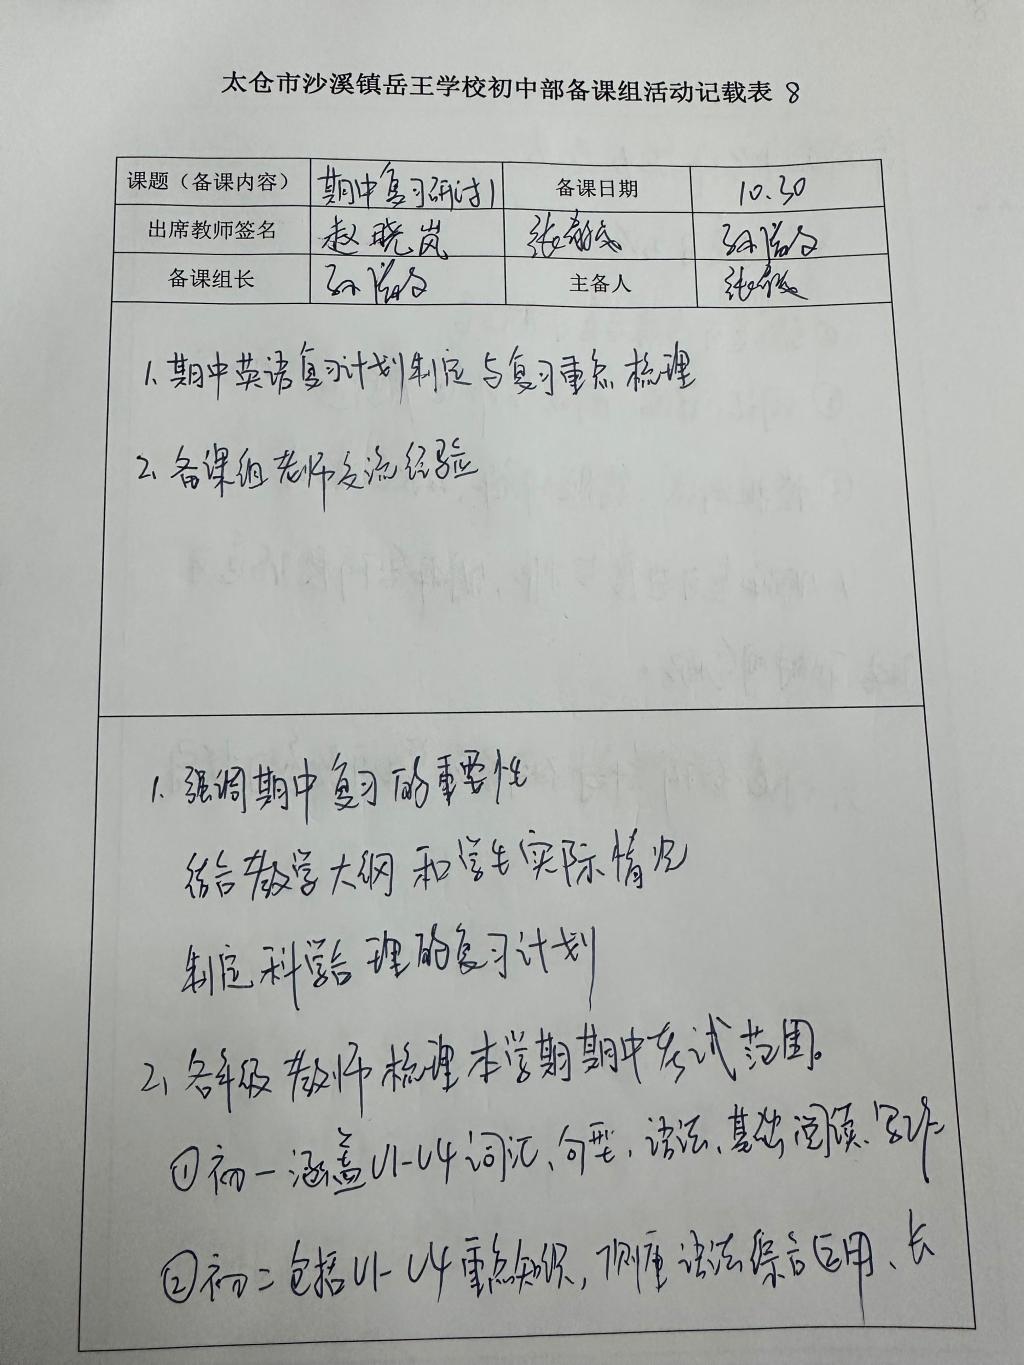 太仓市沙溪镇岳王学校初中部备课组活动记载表 8
课题（备课内容） 期中复习研讨1 备课日期 10.30
出席教师签名 赵晓岚
备课组长 主备人
1. 期中英语复习计划制定与复习重点梳理
2. 备课组老师交流经验
1. 强调期中复习的重要性
结合教学大纲和学生实际情况
制定科学合理的复习计划
2. 各年级教师梳理本学期期中考试范围。
①初一涵盖U1-U4词汇、句型、语法、基础阅读、写作
②初二包括U1-U4重点知识，侧重语法综合运用、长